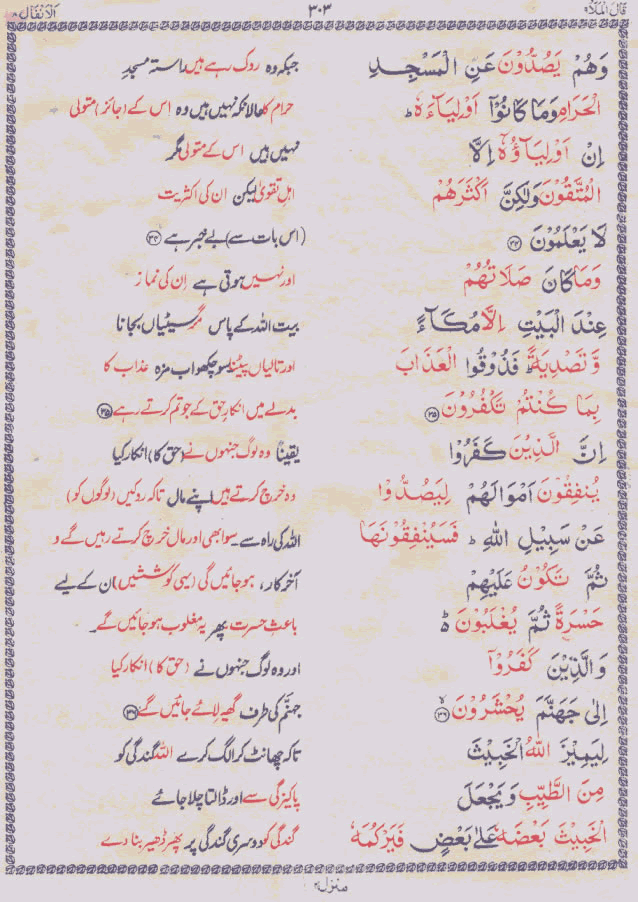 قَالَ الْمَلَاُ ٩ ٣٠٣ اَلْاَنْفَال ٨
وَهُمْ يَصُدُّوْنَ عَنِ الْمَسْجِدِ جبکہ وہ روک رہے ہیں راستہ مسجدِ
الْحَرَامِ وَمَا كَانُوْٓا اَوْلِيَآءَهٗ ؕ حرام کا حالانکہ نہیں ہیں وہ اس کے (جائز) متولی
اِنْ اَوْلِيَآؤُهٗٓ اِلَّا نہیں ہیں اس کے متولی مگر
الْمُتَّقُوْنَ وَلٰكِنَّ اَكْثَرَهُمْ اہلِ تقویٰ لیکن ان کی اکثریت
لَا يَعْلَمُوْنَ ﴿۳۴﴾ (اس بات سے) بے خبر ہے ﴿۳۴﴾
وَمَا كَانَ صَلَاتُهُمْ اور نہیں ہوتی ہے اِن کی نماز
عِنْدَ الْبَيْتِ اِلَّا مُكَآءً بیت اللہ کے پاس مگر سیٹیاں بجانا
وَّتَصْدِيَةً ؕ فَذُوْقُوا الْعَذَابَ اور تالیاں پیٹنا سو چکھو اب مزہ عذاب کا
بِمَا كُنْتُمْ تَكْفُرُوْنَ ﴿۳۵﴾ بدلے میں انکارِ حق کے جو تم کرتے رہے ﴿۳۵﴾
اِنَّ الَّذِيْنَ كَفَرُوْا یقیناً وہ لوگ جنہوں نے (حق کا) انکار کیا
يُنْفِقُوْنَ اَمْوَالَهُمْ لِيَصُدُّوْا وہ خرچ کرتے ہیں اپنے مال تاکہ روکیں (لوگوں کو)
عَنْ سَبِيْلِ اللّٰهِ ؕ فَسَيُنْفِقُوْنَهَا اللہ کی راہ سے۔ سو ابھی اور مال خرچ کرتے رہیں گے وہ
ثُمَّ تَكُوْنُ عَلَيْهِمْ آخر کار، ہو جائیں گی (یہی کوششیں) ان کے لیے
حَسْرَةً ثُمَّ يُغْلَبُوْنَ ؕ باعثِ حسرت پھر یہ مغلوب ہو جائیں گے۔
وَالَّذِيْنَ كَفَرُوْٓا اور وہ لوگ جنہوں نے (حق کا) انکار کیا
اِلٰى جَهَنَّمَ يُحْشَرُوْنَ ﴿۳۶﴾ جہنّم کی طرف گھیر لائے جائیں گے ﴿۳۶﴾
لِيَمِيْزَ اللّٰهُ الْخَبِيْثَ تاکہ چھانٹ کر الگ کرے اللہ گندگی کو
مِنَ الطَّيِّبِ وَيَجْعَلَ پاکیزگی سے اور ڈالتا چلا جائے
الْخَبِيْثَ بَعْضَهٗ عَلٰى بَعْضٍ فَيَرْكُمَهٗ گندگی کو دوسری گندگی پر پھر ڈھیر بنا دے
منزل ۲